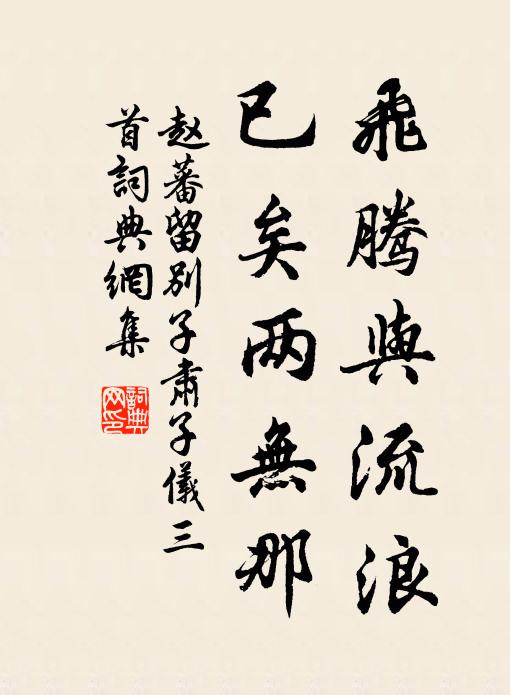 飛騰與流浪
已矣两無那
赵蕃留别子肅子儀三
首詞典網集
詞典
网印